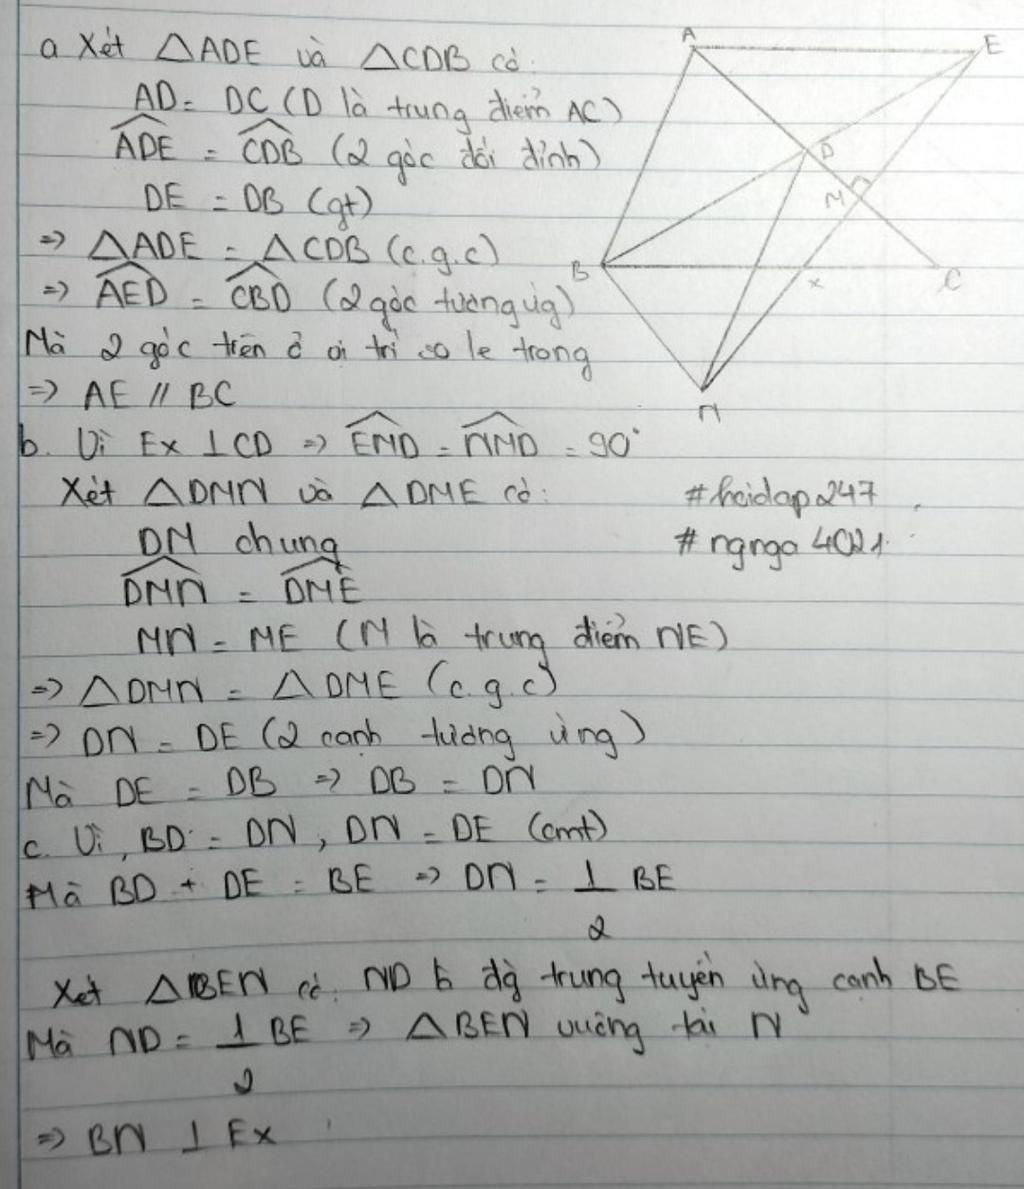 a Xét △ADE và △CDB có:
AD = DC (D là trung điểm AC)
ADE = CDB (2 góc đối đỉnh)
DE = DB (gt)
=> △ADE = △CDB (c.g.c)
=> AED = CBD (2 góc tương ứg)
Mà 2 góc trên ở vị trí so le trong
=> AE // BC
b. Vì Ex ⊥ CD => EMD = NMD = 90°
Xét △DMN và △DME có:
DM chung
DMN = DME
MN = ME (M là trung điểm NE)
=> △DMN = △DME (c.g.c)
=> DN = DE (2 cạnh tương ứng)
Mà DE = DB => DB = DN
c. Vì, BD = DN, DN = DE (cmt)
Mà BD + DE = BE => DN = 1/2 BE
Xét △BEN có: ND là đg trung tuyến ứng cạnh BE
Mà ND = 1/2 BE => △BEN vuông tại N
=> BN ⊥ Ex
A
E
D
M
B
x
C
N
#hoidap247
#ngnga4021